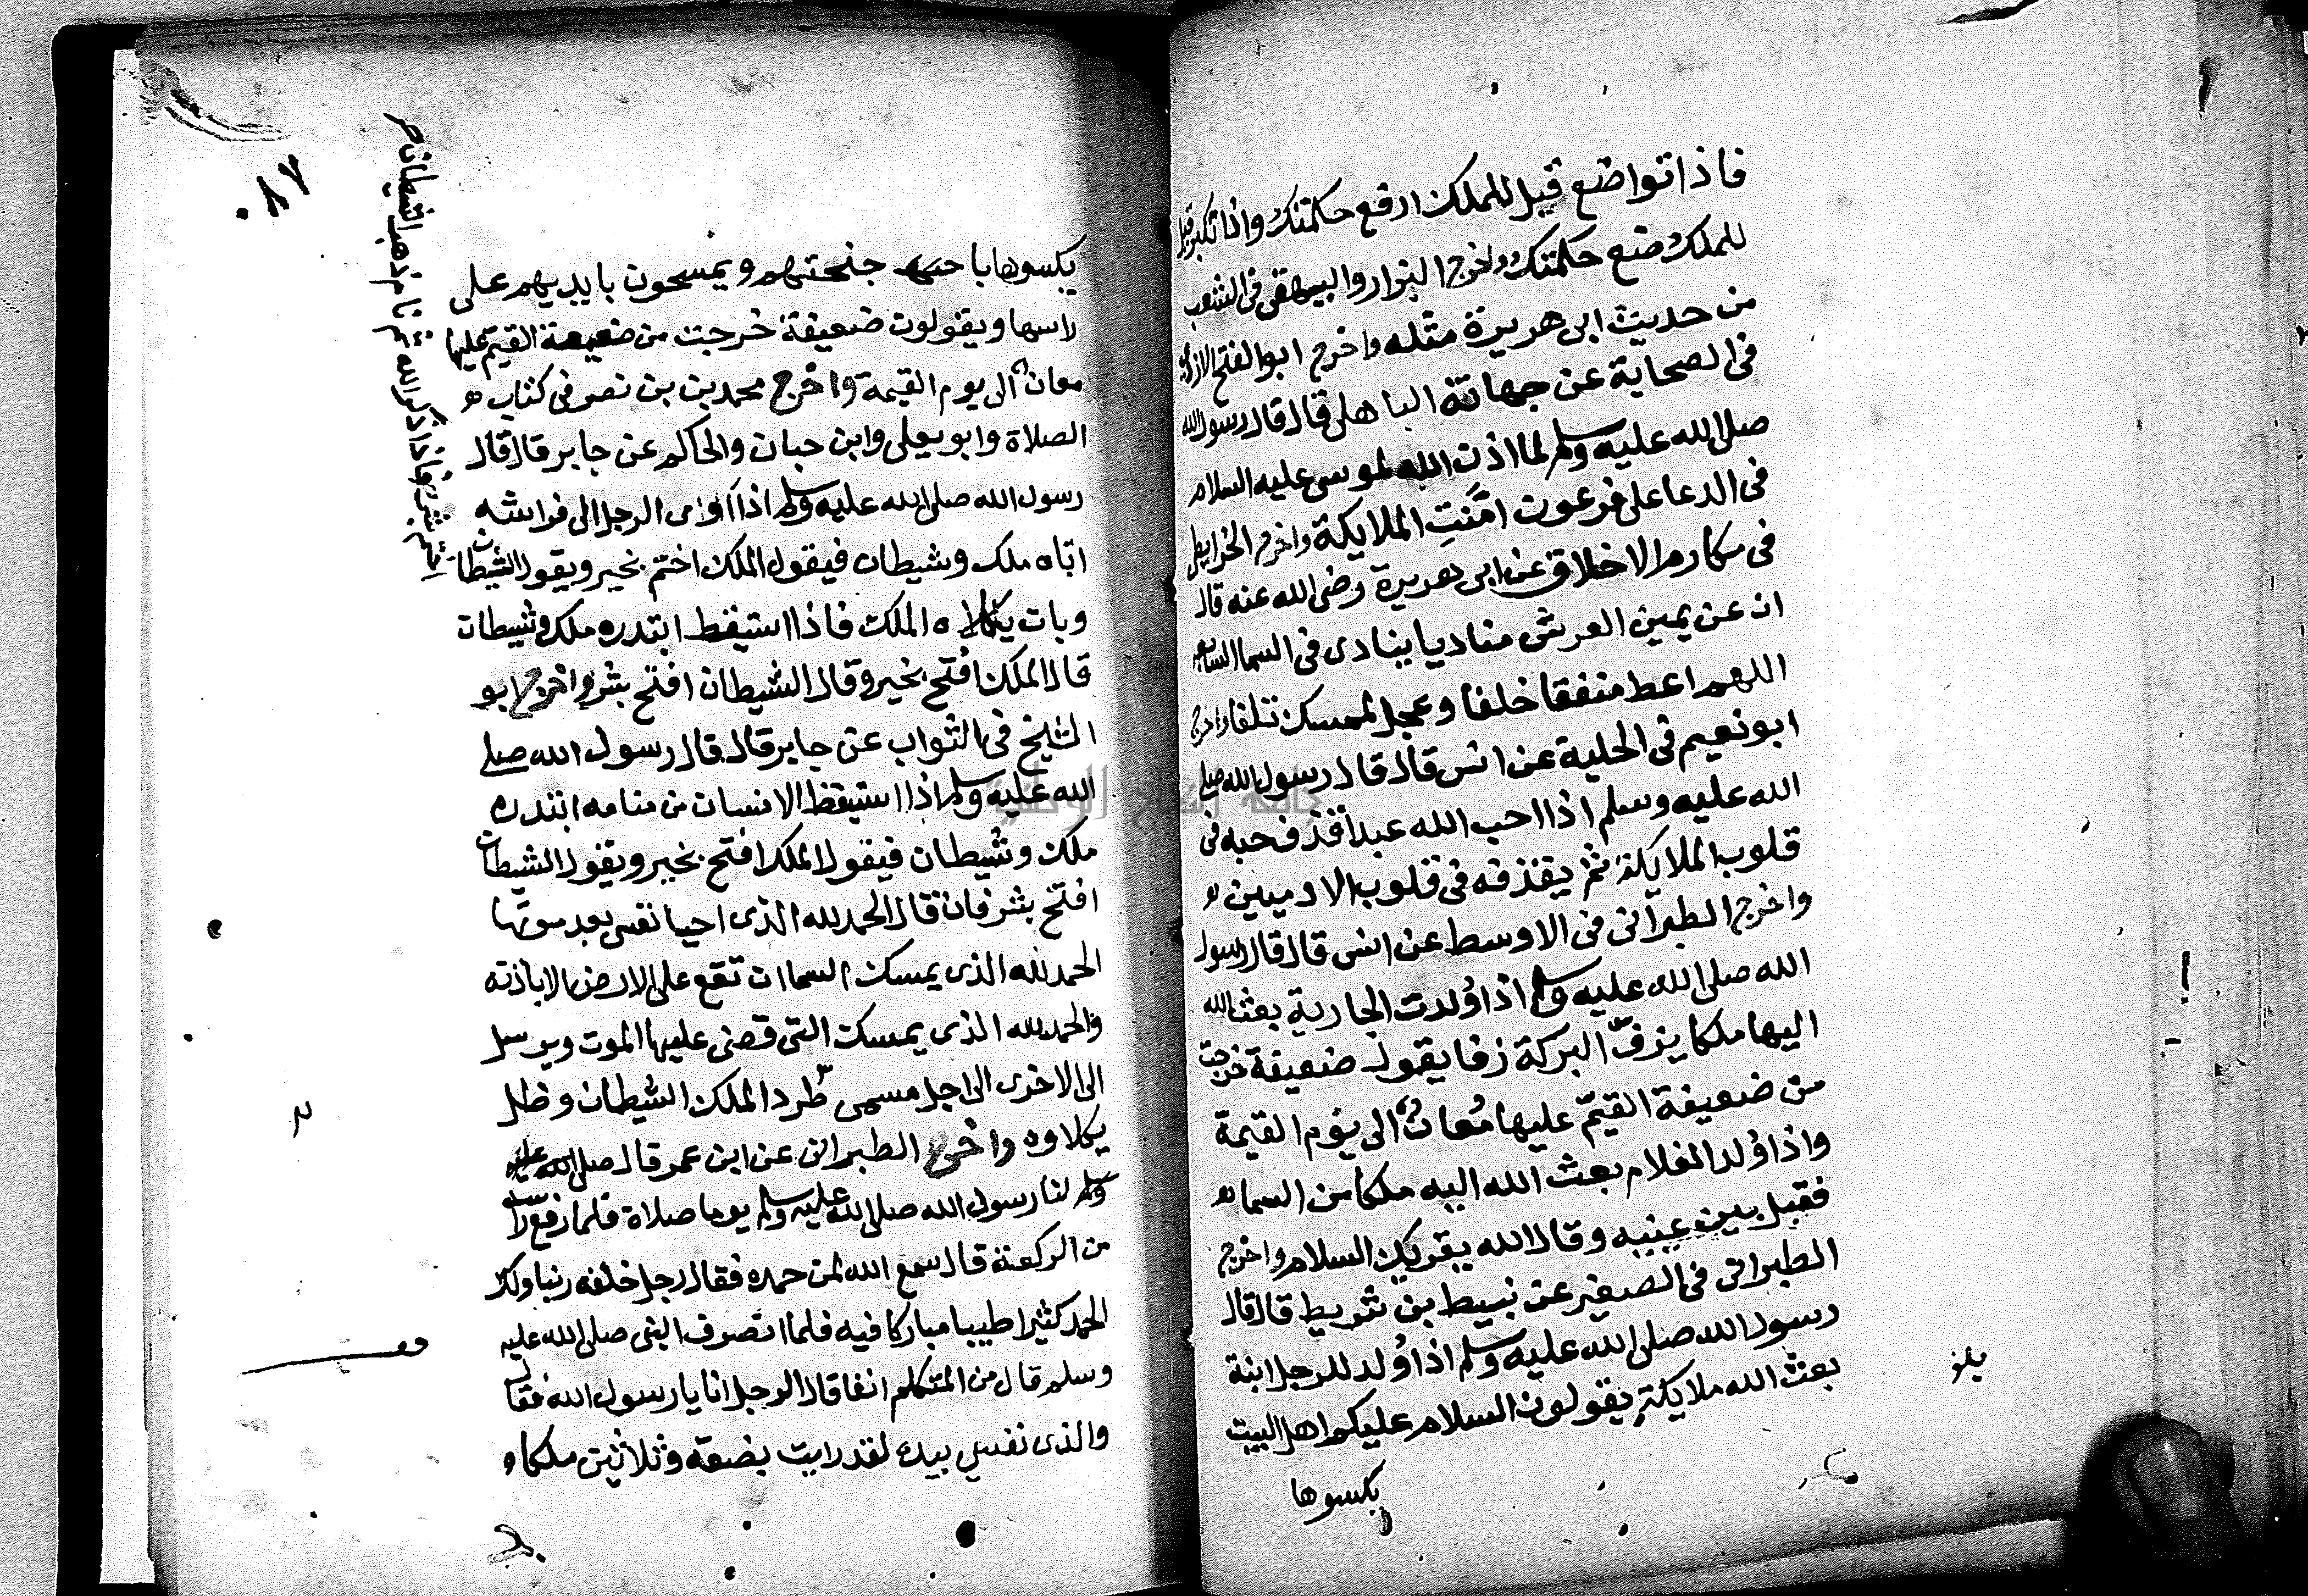 فاذا تواضع قيل للملك ارفع حكمتك واذا تكبر قيل
للملك ضع حكمتك واخرج البزار والبيهقى فى الشعب
من حديث ابى هريرة مثله واخرج ابو الفتح الازدى
فى الصحابة عن جهانة الباهلى قال قال رسول الله
صلى الله عليه وسلم لما اذن الله لموسى عليه السلام
فى الدعا على فرعون امّنتِ الملايكة واخرج الخرايطى
فى مكارم الاخلاق عن ابى هريرة رضى الله عنه قال
ان عن يمين العرش مناديا ينادى فى السما السابعه
اللهم اعط منفقا خلفا وعجل لممسك تلفا واخرج
ابو نعيم فى الحلية عن انس قال قال رسول الله صلى
الله عليه وسلم اذا احب الله عبدا قذف حبه فى
قلوب الملايكة ثم يقذفه فى قلوب الادميين
واخرج الطبرانى فى الاوسط عن انس قال قال رسول
الله صلى الله عليه وسلم اذا وُلدت الجارية بعث الله
اليها ملكا يزفّ البركة زفا يقول ضعيفة خرجت
من ضعيفة القيّم عليها مُعانٌ الى يوم القيمة
واذا وُلد الغلام بعث الله اليه ملكا من السما
فقبل بين عينيه وقال الله يقريك السلام واخرج
الطبرانى فى الصغير عن نبيط بن شريط قال قال
رسول الله صلى الله عليه وسلم اذا وُلد للرجل ابنة
بعث الله ملايكة يقولون السلام عليكم اهل البيت
يكسوها
بلغ
٠٨٧
يكسوها با جنحتهم ويمسحون بايديهم على
راسها ويقولون ضعيفة خرجت من ضعيفة القيّم عليها
معانٌ الى يوم القيمة واخرج محمد بن بن نصر فى كتاب
الصلاة وابو يعلى وابن حبان والحاكم عن جابر قال قال
رسول الله صلى الله عليه وسلم اذا اوى الرجل الى فراشه
اتاه ملك وشيطان فيقول الملك اختم بخير ويقول الشيطان
وبات يكلاه الملك فاذا استيقظ ابتدره ملك وشيطان
قال الملك افتح بخير وقال الشيطان افتح بشر واخرج ابو
الشيخ فى الثواب عن جابر قال قال رسول الله صلى
الله عليه وسلم اذا استيقظ الانسان من منامه ابتدره
ملك وشيطان فيقول الملك افتح بخير ويقول الشيطان
افتح بشر فان قال الحمد لله الذى احيا نفسى بعد موتها
الحمد لله الذى يمسك السما ان تقع على الارض الا باذنه
والحمد لله الذى يمسك التى قضى عليها الموت ويرسل
الى الاخرى الى اجل مسمى طرد الملك الشيطان وظل
يكلاوه واخرج الطبرانى عن ابن عمر قال صلى الله عليه
وسلم لنا رسول الله صلى الله عليه وسلم يوما صلاة فلما رفع راسه
من الركعة قال سمع الله لمن حمده فقال رجل خلفه ربنا ولك
الحمد كثيرا طيبا مباركا فيه فلما انصرف النبى صلى الله عليه
وسلم قال من المتكلم انفا قال الرجل انا يا رسول الله فقال
والذى نفسى بيده لقد رايت بضعة وثلاثين ملكا
اختم بشر فاذا ذكر الله ثم نام ذهب الشيطان صح
جامعة النجاح الوطنية